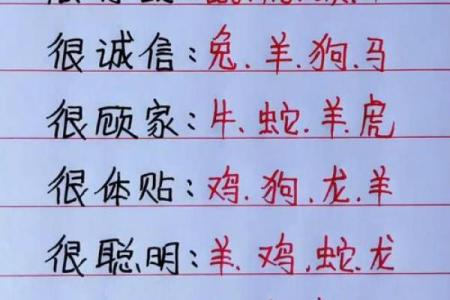 很诚信:兔.羊.狗.马
很顾家:牛.蛇.羊.虎
很体贴:鸡.狗、龙.羊
很聪明:羊.鸡.蛇.龙